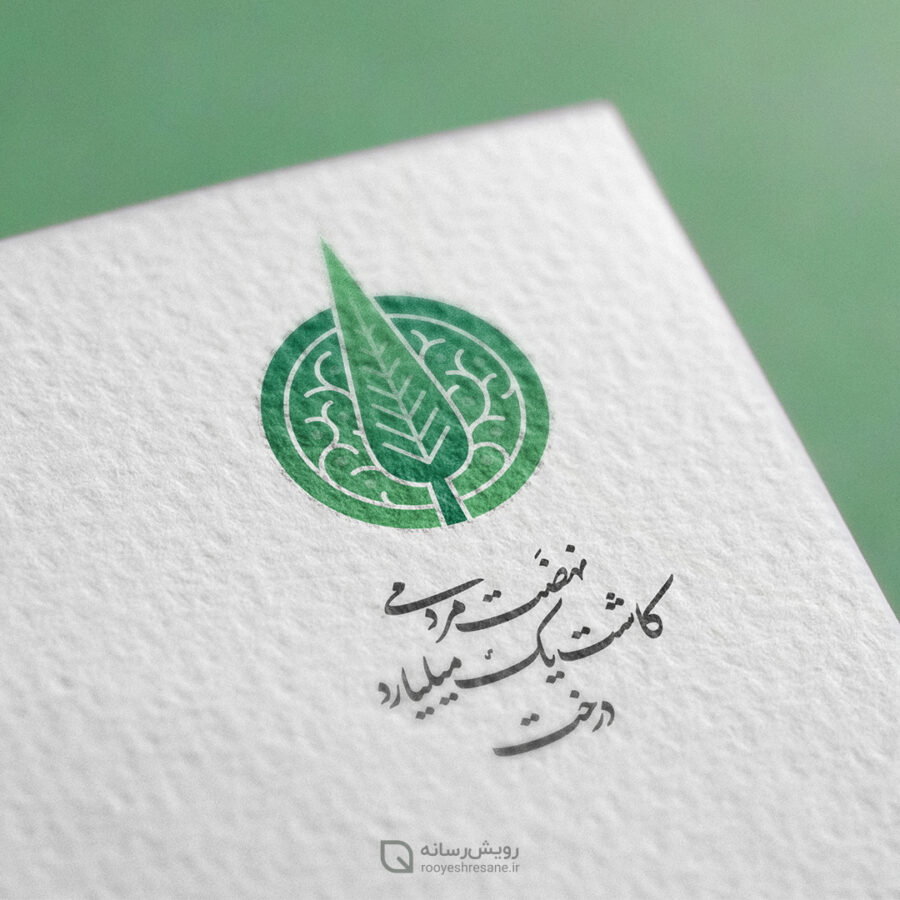 نهضت مردمی
کاشت یک میلیارد
درخت
رویش‌رسانه
rooyeshresane.ir